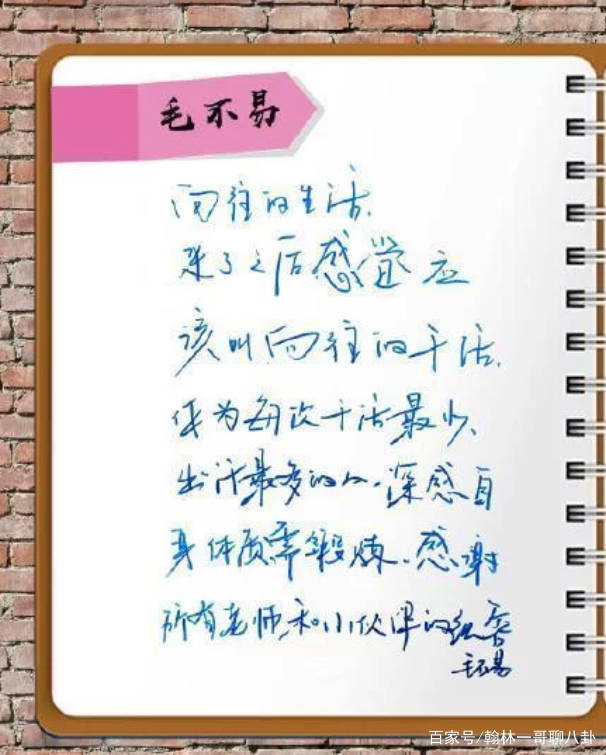 毛不易
向往的生活、
来了之后感觉应
该叫向往的干活、
作为每次干活最少、
出汗最多的人.深感自
身体质需锻炼.感谢
所有老师和小伙伴的包容
毛不易
百家号/翰林一哥聊八卦